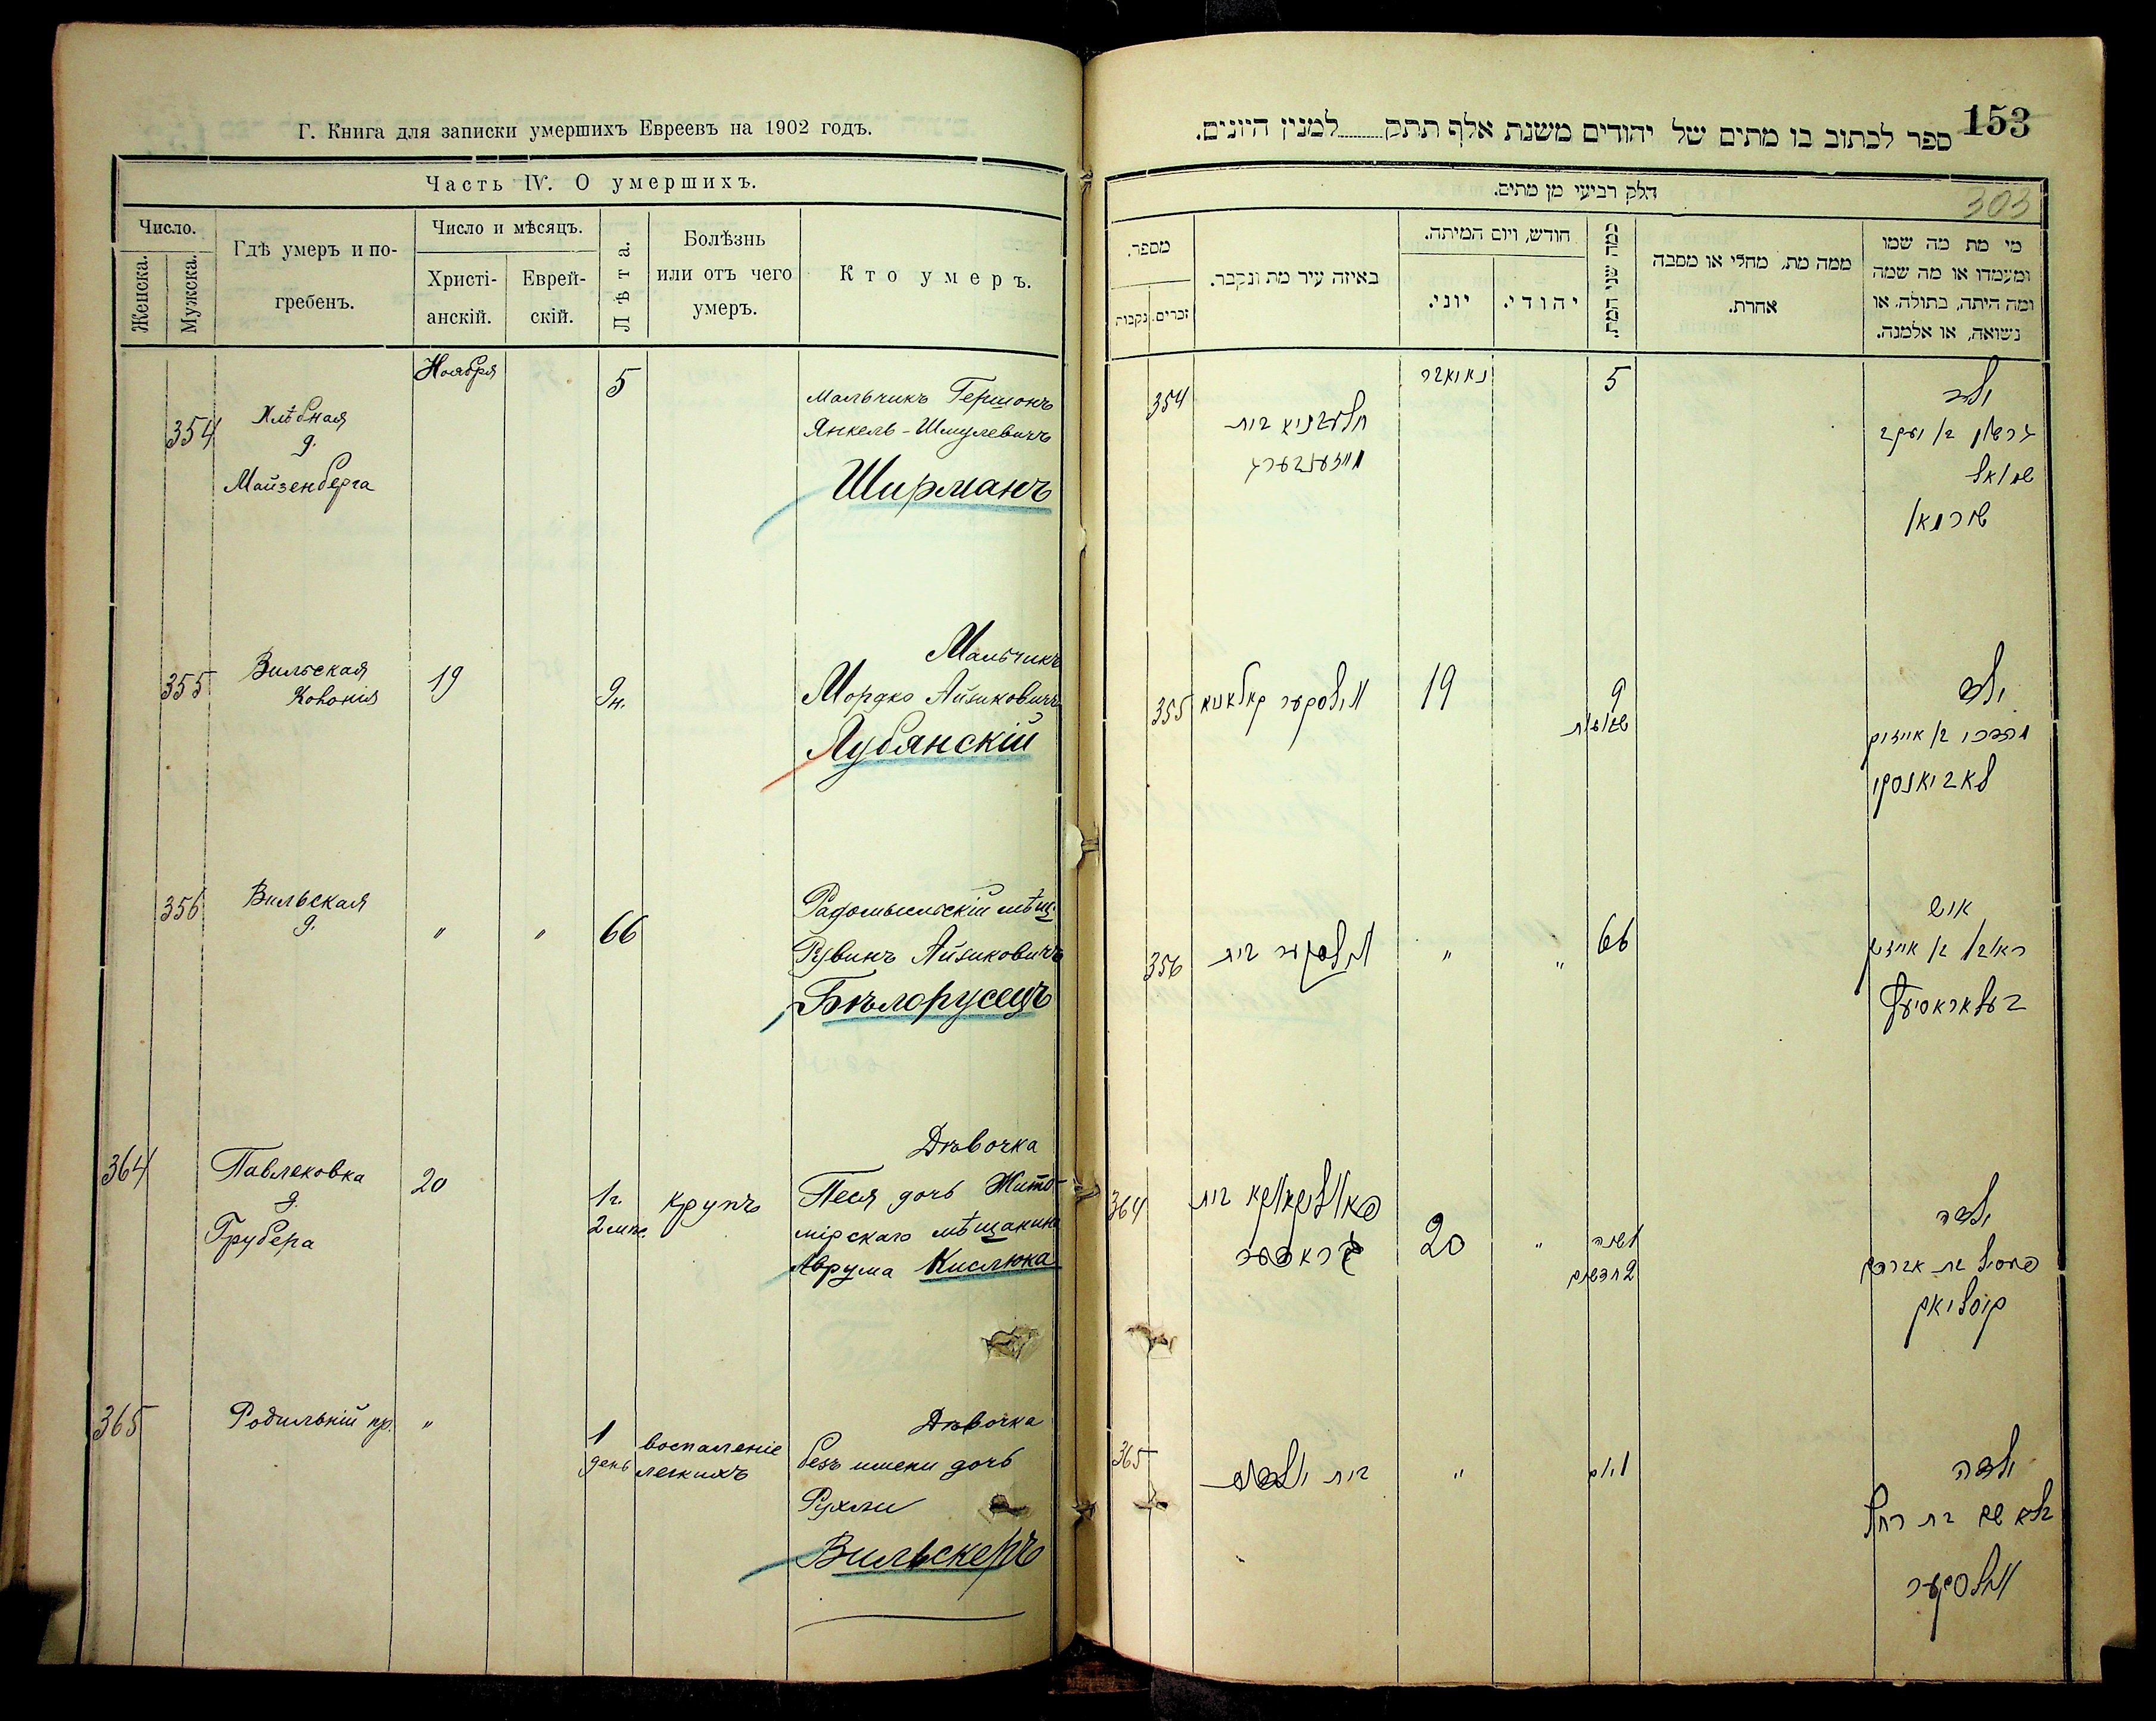 Г. Книга для записки умершихъ Евреевъ на 1902 годъ.
Часть IV. О умершихъ.
Число.
Женска.
Мужска.
Гдѣ умеръ и по-
гребенъ.
Число и мѣсяцъ.
Христі-
анскій.
Еврей-
скій.
Лѣта.
Болѣзнь
или отъ чего
умеръ.
Кто умеръ.
Ноября
354
Хлѣбная
д.
Майзенберга
5
Мальчикъ Гершонъ
Янкель-Шмулевичъ
Ширманъ
355
Вильская
Колонія
19
9 н.
Мальчикъ
Мордко Айзиковичъ
Лубянскій
356
Вильская
д.
"
"
66
Радомысльскій мѣщ.
Рувинъ Айзиковичъ
Бѣлорусецъ
364
Павлековка
д.
Грубера
20
1 г.
2 мѣс.
крупъ
Дѣвочка
Песя дочь Жито-
мірскаго мѣщанина
Аврума Кислюка
365
Родильній пр.
"
1
день
воспаленіе
легкихъ
Дѣвочка
безъ имени дочь
Рухли
Вильскеръ
153
ספר לכתוב בו מתים של יהודים משנת אלף תתק למנין היונים.
303
חלק רביעי מן מתים.
מספר.
זכרים.
נקבות
באיזה עיר מת ונקבר.
חודש, ויום המיתה.
יוני.
יהודי.
כמה שני המת.
ממה מת, מחלי או מסבה
אחרת.
מי מת מה שמו
ומעמדו או מה שמה
ומה היתה, בתולה, או
נשואה, או אלמנה.
354
בית
נאיאבר
5
ילד
גרשון בן יעקב
שמואל
שירמאן
355
ווילסקער קאלאניא
19
9
שבועות
ילד
מרדכי בן אייזיק
לאביאנסקי
356
ווילסקער בית
"
"
66
איש
ראובן בן אייזיק
364
בית
20
"
1 שנה
2 חדשים
ילדה
פעסיל בת אברהם
קיסליאק
365
בית
"
1 יום
ילדה
בלא שם בת רחל
ווילסקער